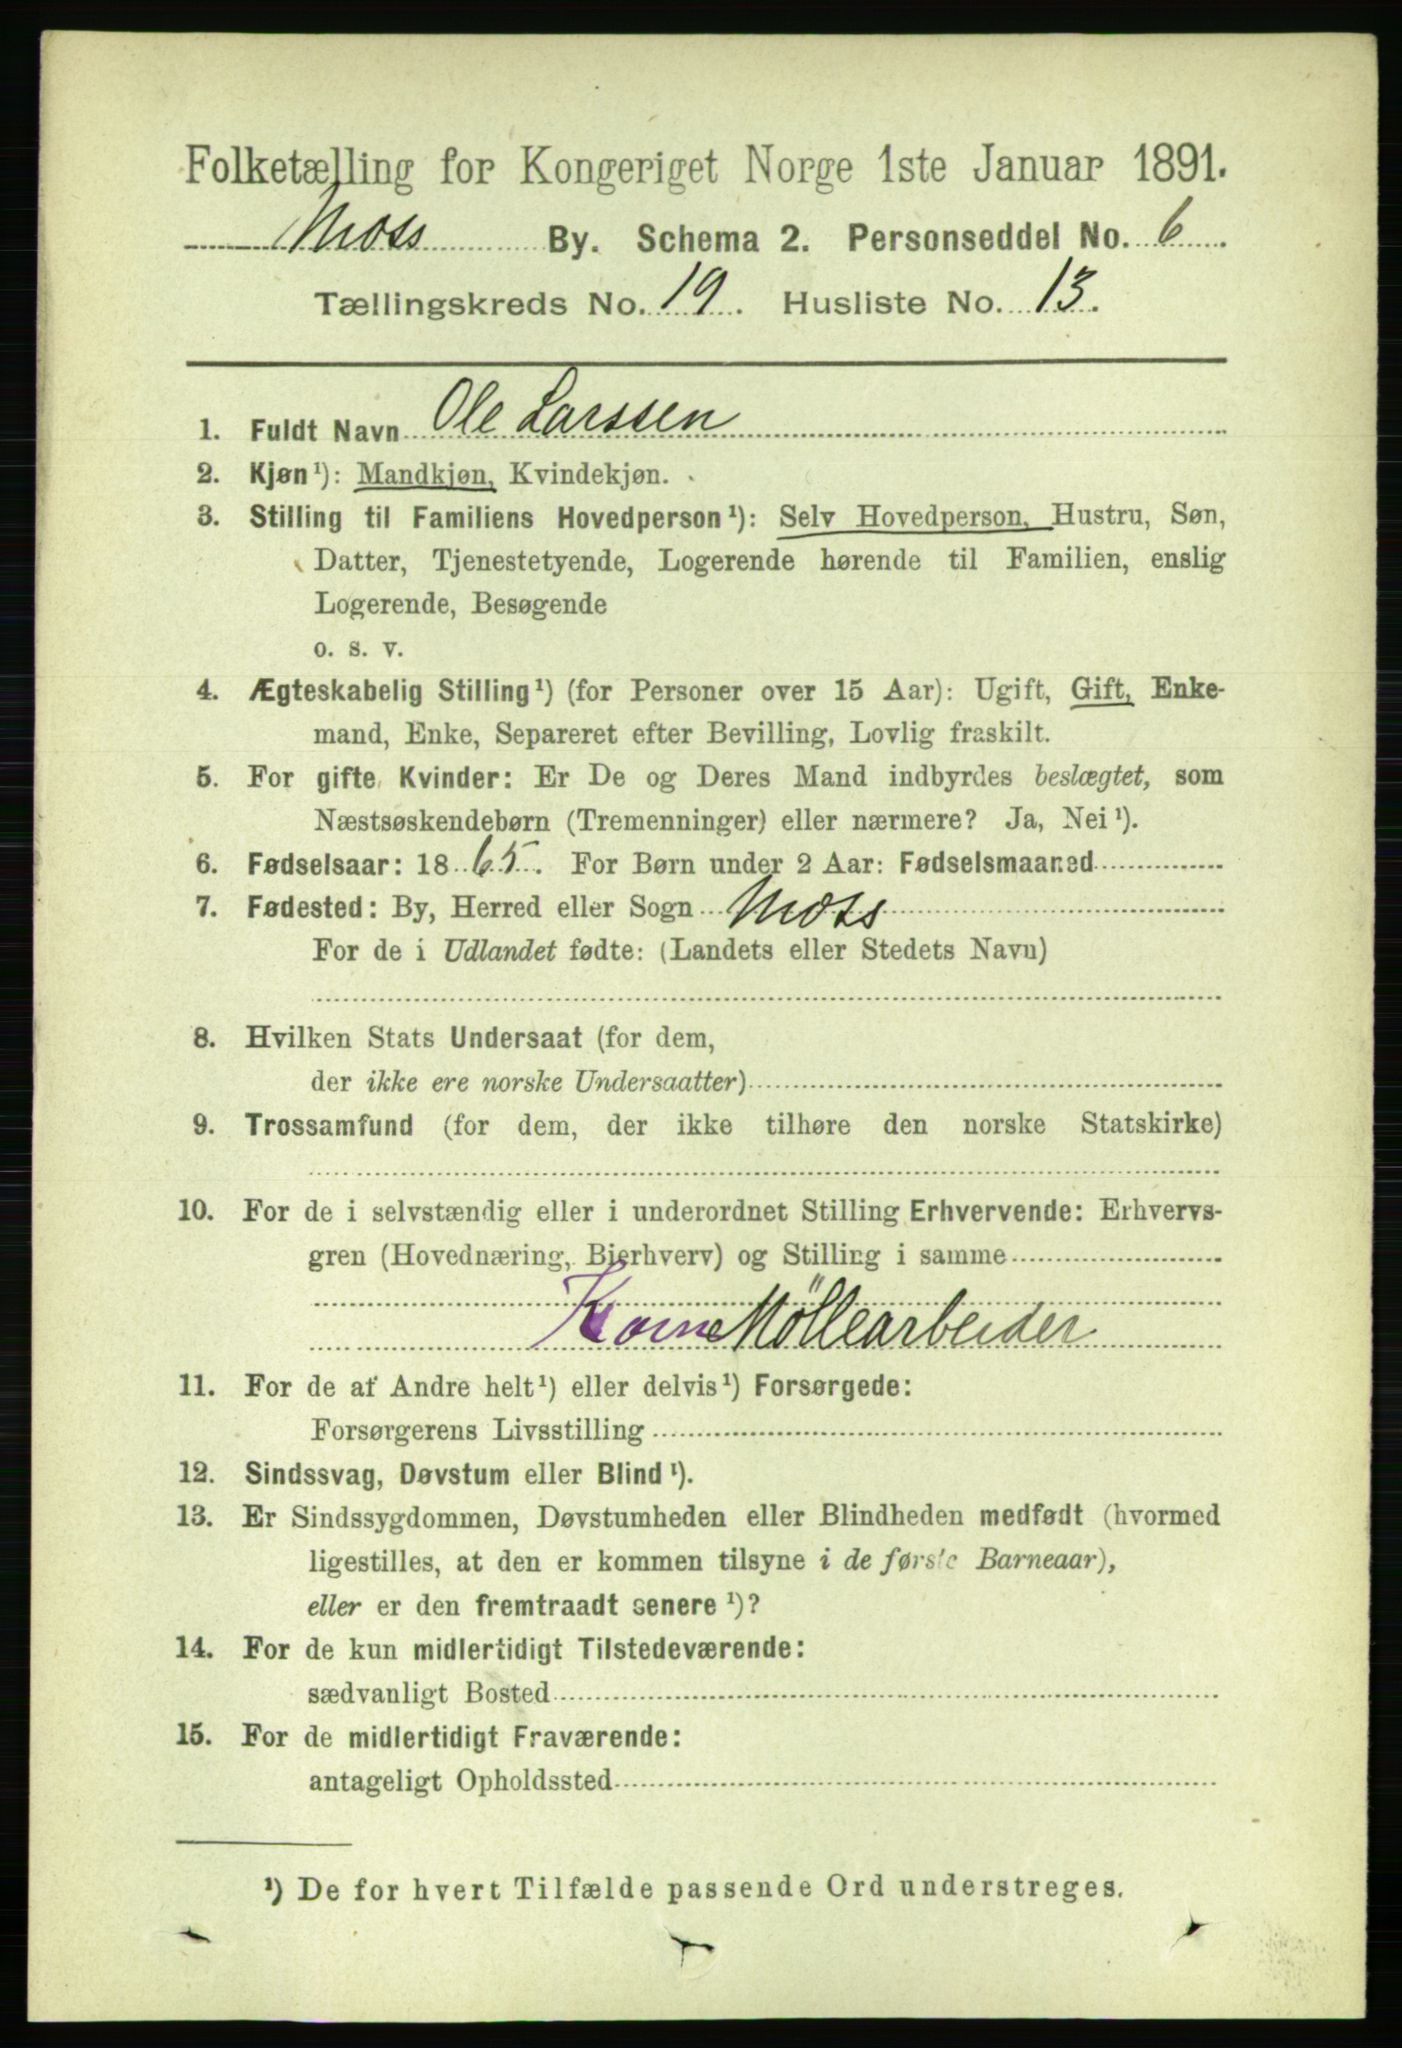 Folketælling for Kongeriget Norge 1ste Januar 1891.
Moss By. Schema 2. Personseddel No. 6
Tællingskreds No. 19. Husliste No. 13.
1. Fuldt Navn Ole Larssen
2. Kjøn¹): Mandkjøn, Kvindekjøn.
3. Stilling til Familiens Hovedperson¹): Selv Hovedperson, Hustru, Søn,
Datter, Tjenestetyende, Logerende hørende til Familien, enslig
Logerende, Besøgende
o. s. v.
4. Ægteskabelig Stilling¹) (for Personer over 15 Aar): Ugift, Gift, Enke-
mand, Enke, Separeret efter Bevilling, Lovlig fraskilt.
5. For gifte Kvinder: Er De og Deres Mand indbyrdes beslægtet, som
Næstsøskendebørn (Tremenninger) eller nærmere? Ja, Nei¹).
6. Fødselsaar: 1865. For Børn under 2 Aar: Fødselsmaaned
7. Fødested: By, Herred eller Sogn Moss
For de i Udlandet fødte: (Landets eller Stedets Navn)
8. Hvilken Stats Undersaat (for dem,
der ikke ere norske Undersaatter)
9. Trossamfund (for dem, der ikke tilhøre den norske Statskirke)
10. For de i selvstændig eller i underordnet Stilling Erhvervende: Erhvervs-
gren (Hovednæring, Bierhverv) og Stilling i samme
Korn Möllearbeider
11. For de af Andre helt¹) eller delvis¹) Forsørgede:
Forsørgerens Livsstilling
12. Sindssvag, Døvstum eller Blind¹).
13. Er Sindssygdommen, Døvstumheden eller Blindheden medfødt (hvormed
ligestilles, at den er kommen tilsyne i de første Barneaar),
eller er den fremtraadt senere¹)?
14. For de kun midlertidigt Tilstedeværende:
sædvanligt Bosted
15. For de midlertidigt Fraværende:
antageligt Opholdssted
¹) De for hvert Tilfælde passende Ord understreges.